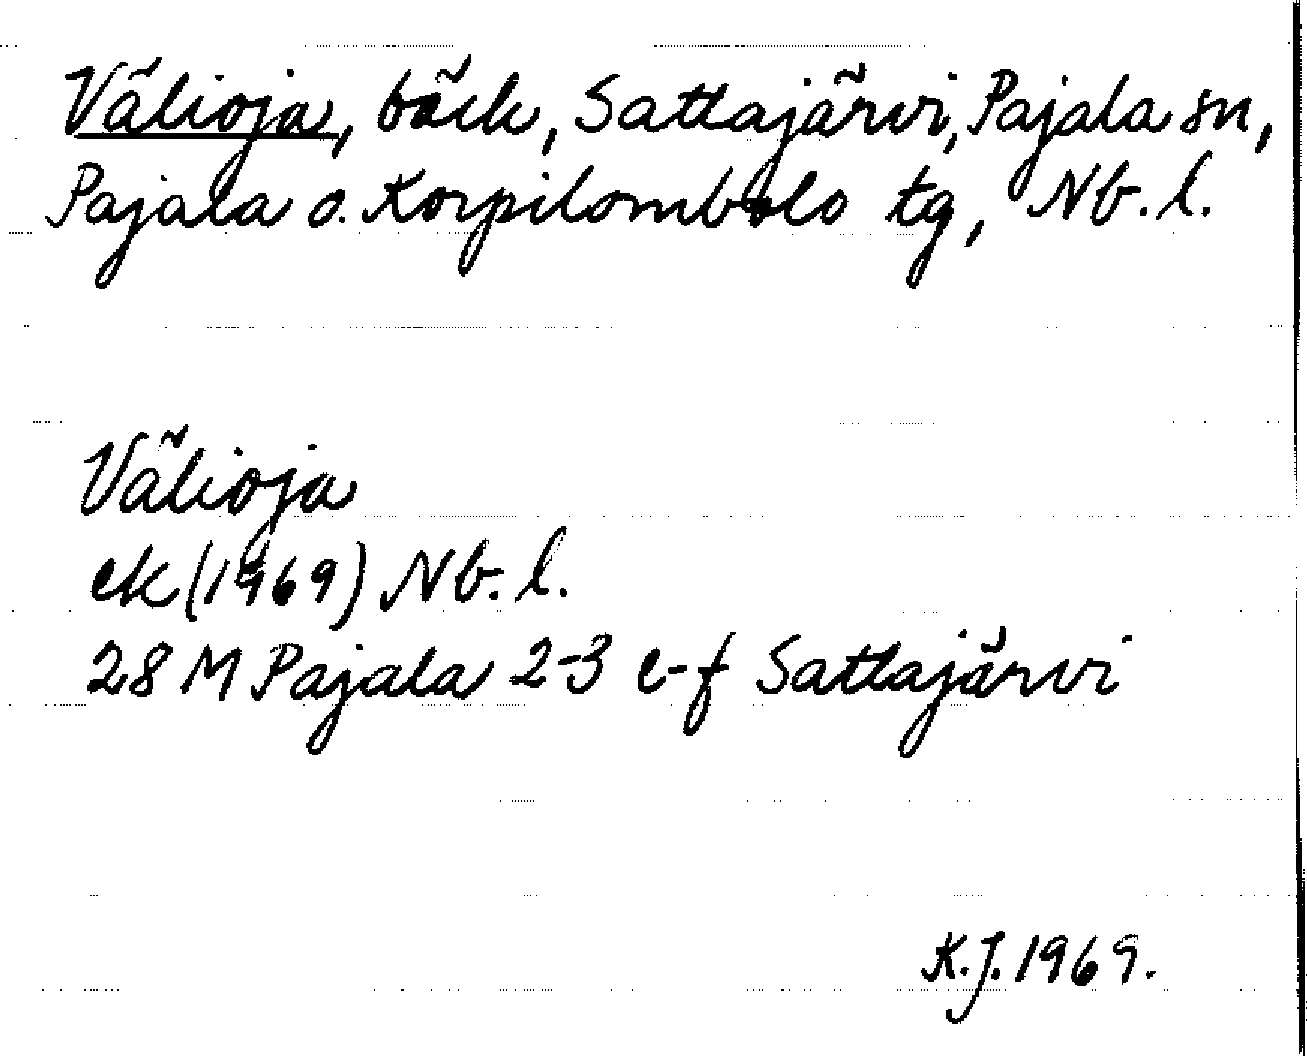 Välioja, bäck, Sattajärvi, Pajala sn,
Pajala o. Korpilombolo tg, Nb. l.
Välioja
ek (1969) Nb. l.
28 M Pajala 2-3 e-f Sattajärvi
K.J. 1969.